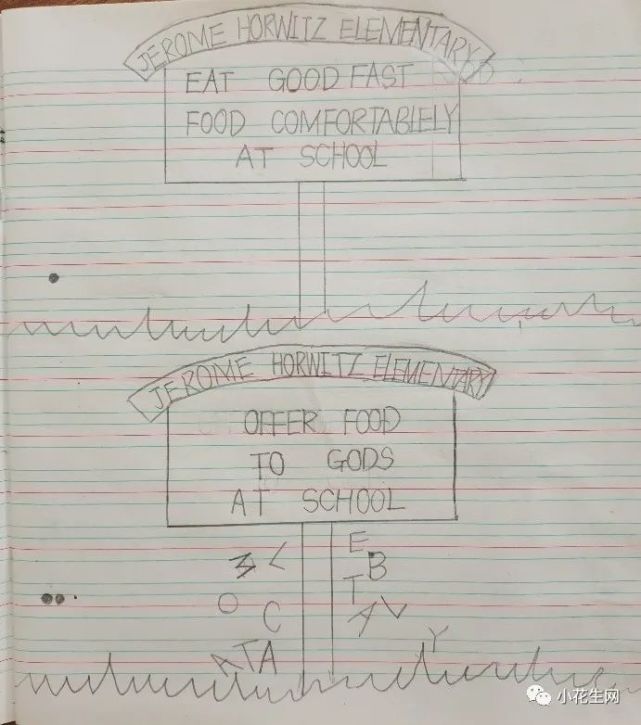 JEROME HORWITZ ELEMENTARY
EAT GOOD FAST
FOOD COMFORTABLELY
AT SCHOOL
JEROME HORWITZ ELEMENTARY
OFFER FOOD
TO GODS
AT SCHOOL
M L E
B
O T
C A L
Y
A T A
小花生网